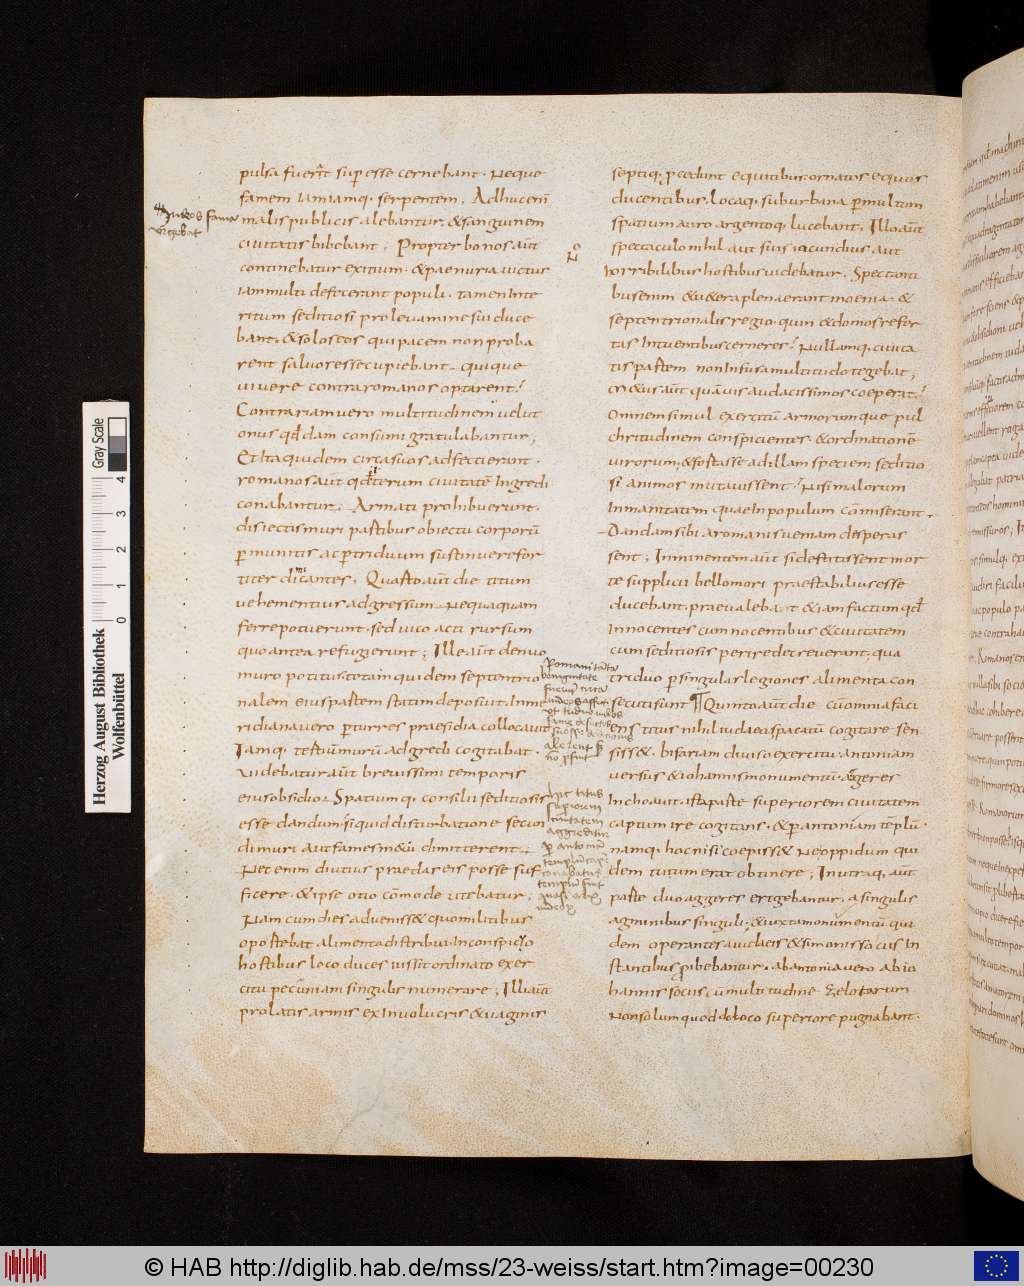 pulsa fuer̄t sup esse cernebant · Neque
famem iamiamq; serpentem. Adhucenī
malis publicis alebantur, & sanguinem
civitatis bibebant; Propter bonos aūt
continebatur exitium · & paenuria victus
iam multi defecerant populi · tamen inte
ritum seditiosi pro levamine sui duce
bant, & solos eos qui pacem non proba
rent salvos esse cupiebant quique
vivere contra romanos optarent;
Contrariam vero multitudinem velut
onus qđdam consumi gratulabantur;
Et ita quidem circa suos adfecti erant ·
romanos aūt qđ iterum civitatē ingredi
conabantur. Armati prohibuerunt ·
disiectis muri partibus obiectu corporū
p munitis ac p triduum sustinuere for
titer dimicantes. Quarto aūt die titum
vehementius adgressum Nequaquam
ferre potuerunt · sed vico acti rursum
quo antea refugierunt; Ille aūt denuo
muro potitus totam quidem septentrio
nalem eius partem statim deposuit. In me
ridiana vero p turres praesidia collocavit
Iamq; tertiū murū adgredi cogitabat ·
Videbatur aūt brevissimi temporis
eius obsidio. Spatiumq; consilii seditiosis
esse dandum · si quid disturbatione secun
di muri aut fames metu dimitterent
Nec enim diutius praeda reis posse suf
ficere · & ipse otio cōmode utebatur.
Nam cum dies advenisset quo militibus
oportebat alimenta distribui in conspicuo
hostibus loco duces iussit ordinato exer
citu pecuniam singulis numerare; Illi aūt
prolatis armis ex involucris & vaginis
iudeos fame
urgebat
septiq; procedunt equitibus ornatos equos
ducentibus. Locaq; suburbana p multum
spatium auro argentoq; lucebant; Illo aūt
spectaculo nihil aut suis iucundius aut
horribilibus hostibus videbatur. Spectanti
bus enim & vetera plena erant moenia · &
septentrionalis regio · quin & domos refer
tas intuentibus cerneres? Nullamq; civita
tis partem non infusa multitudo tegebat;
Metus aūt quāvis audacissimos coeperat;
Omnem simul exercitū armorumque pul
chritudinem conspicientes · & ordinationē
virorum, & fortasse ad illam speciem seditio
si animos mutavissent · Nisi malorum
inmanitatem quae in populum cōmiserant
Dandam sibi a romanis veniam desperas
sent; Imminentem aūt si destitissent mor
te supplicii bello mori praestabilius esse
ducebant · praevalebant & iam factum qđ
innocentes cum nocentibus & civitatem
cum seditiosis perire decreverant; qua
triduo p singulas legiones alimenta con
secuti sunt ¶ Quinto aūt die cum omnia faci
ens titus nihil iudaeos pacatū cogitare sen
sisset · bifariam diviso exercitu antoniam
versus & iohannis monumentū aggeres
inchoavit · ista parte superiorem civitatem
captum ire cogitans · & p antoniam tēplū ·
namq; hoc nisi coepisset Neoppidum qui
dem tutum erat obtinere; In utraq; aūt
parte duo aggeres erigebantur, a singulis
agminibus singuli · & iuxta monumentū qui
dem operantes a iudaeis & simonis sociis in
stantibus prohibebantur. ab antonia vero ab io
hannis sociis cū multitudine zelotarum
Non solum quod de loco superiore pugnabant ·
hic titus
superiorem
civitatem
aggreditur
p antoniā
templū cape
conabatur
templū fuit
quasi arx
iudeor
Herzog August Bibliothek
Wolfenbüttel
0 1 2 3 4
Gray Scale
© HAB http://diglib.hab.de/mss/23-weiss/start.htm?image=00230